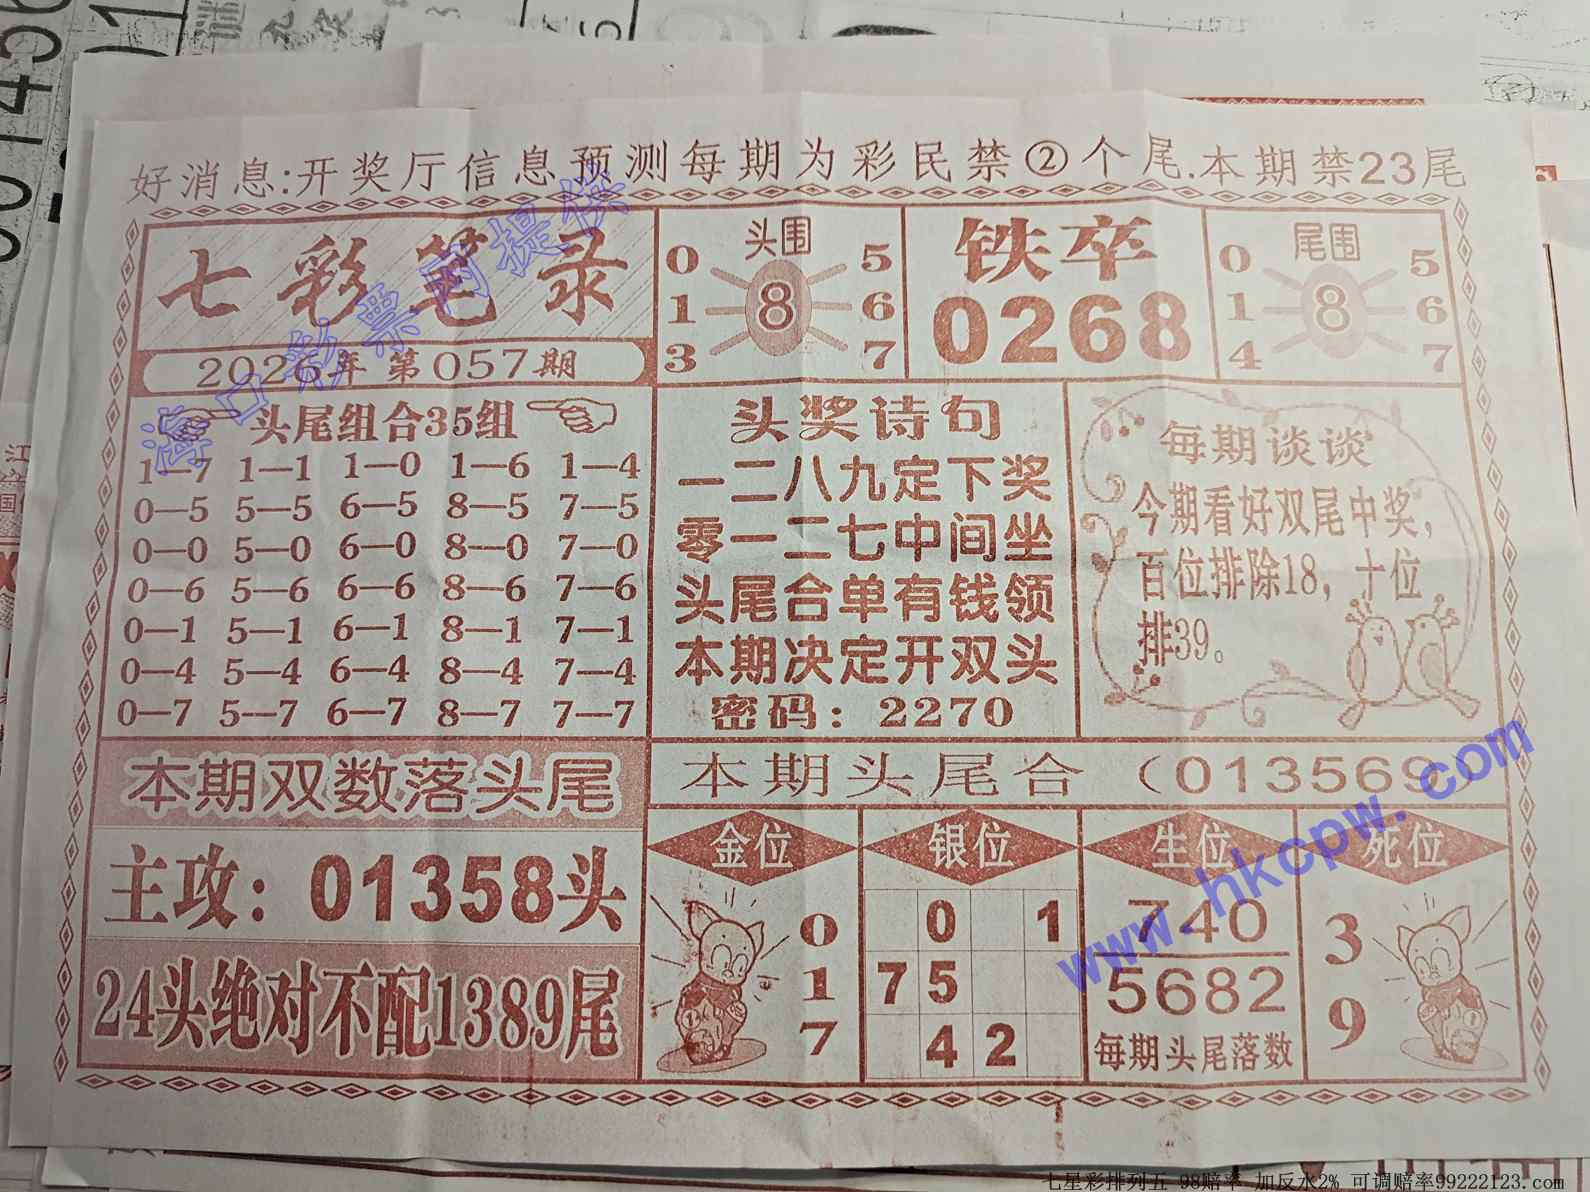 好消息:开奖厅信息预测每期为彩民禁②个尾.本期禁23尾
七彩笔录
2026年第057期
头围
0 5
1 8 6
3 7
铁卒
0268
尾围
0 5
1 8 6
4 7
头尾组合35组
1—7 1—1 1—0 1—6 1—4
0—5 5—5 6—5 8—5 7—5
0—0 5—0 6—0 8—0 7—0
0—6 5—6 6—6 8—6 7—6
0—1 5—1 6—1 8—1 7—1
0—4 5—4 6—4 8—4 7—4
0—7 5—7 6—7 8—7 7—7
头奖诗句
一二八九定下奖
零一二七中间坐
头尾合单有钱领
本期决定开双头
密码：2270
每期谈谈
今期看好双尾中奖，
百位排除18，十位
排39。
本期双数落头尾
主攻：01358头
24头绝对不配1389尾
本期头尾合（013569）
金位
0
1
7
银位
0 1
7 5
4 2
生位
740
5682
每期头尾落数
死位
3
9
海口彩票网提供
www.hkcpw.com
七星彩排列五 98赔率 加反水2% 可调赔率99222123.com